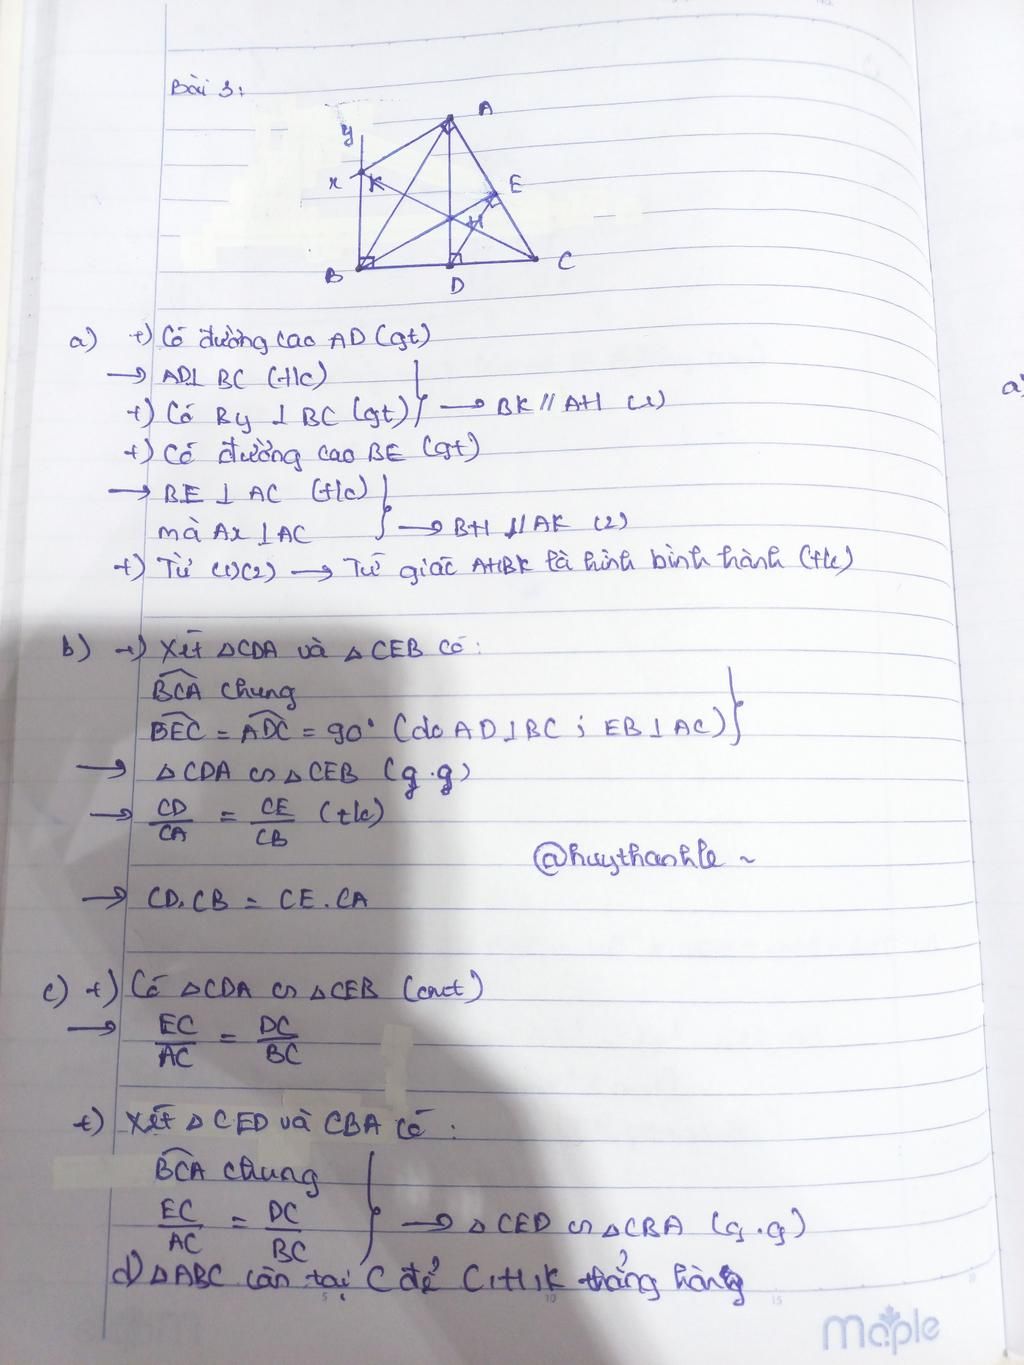 Bài 3:
A
y
x K
E
H
B
D
C
a) +) Có đường cao AD (gt)
→ AD⊥ BC (t/c)
+) Có By ⊥ BC (gt) } → BK // AH (1)
+) Có đường cao BE (gt)
→ BE ⊥ AC (t/c)
mà Ax ⊥ AC } → BH // AK (2)
+) Từ (1)(2) → Tứ giác AHBK là hình bình hành (t/c)
b) +) Xét △CDA và △CEB có:
BCA chung
BEC = ADC = 90° (do AD⊥BC ; EB⊥AC) }
→ △CDA ∽ △CEB (g.g)
→ CD/CA = CE/CB (t/c)
@huythanhle ~
→ CD.CB = CE.CA
c) +) Có △CDA ∽ △CEB (cmt)
→ EC/AC = DC/BC
+) Xét △CED và CBA có :
BCA chung
EC/AC = DC/BC } → △CED ∽ △CBA (g.g)
d) △ABC cân tại C để C,H,K thẳng hàng
Maple